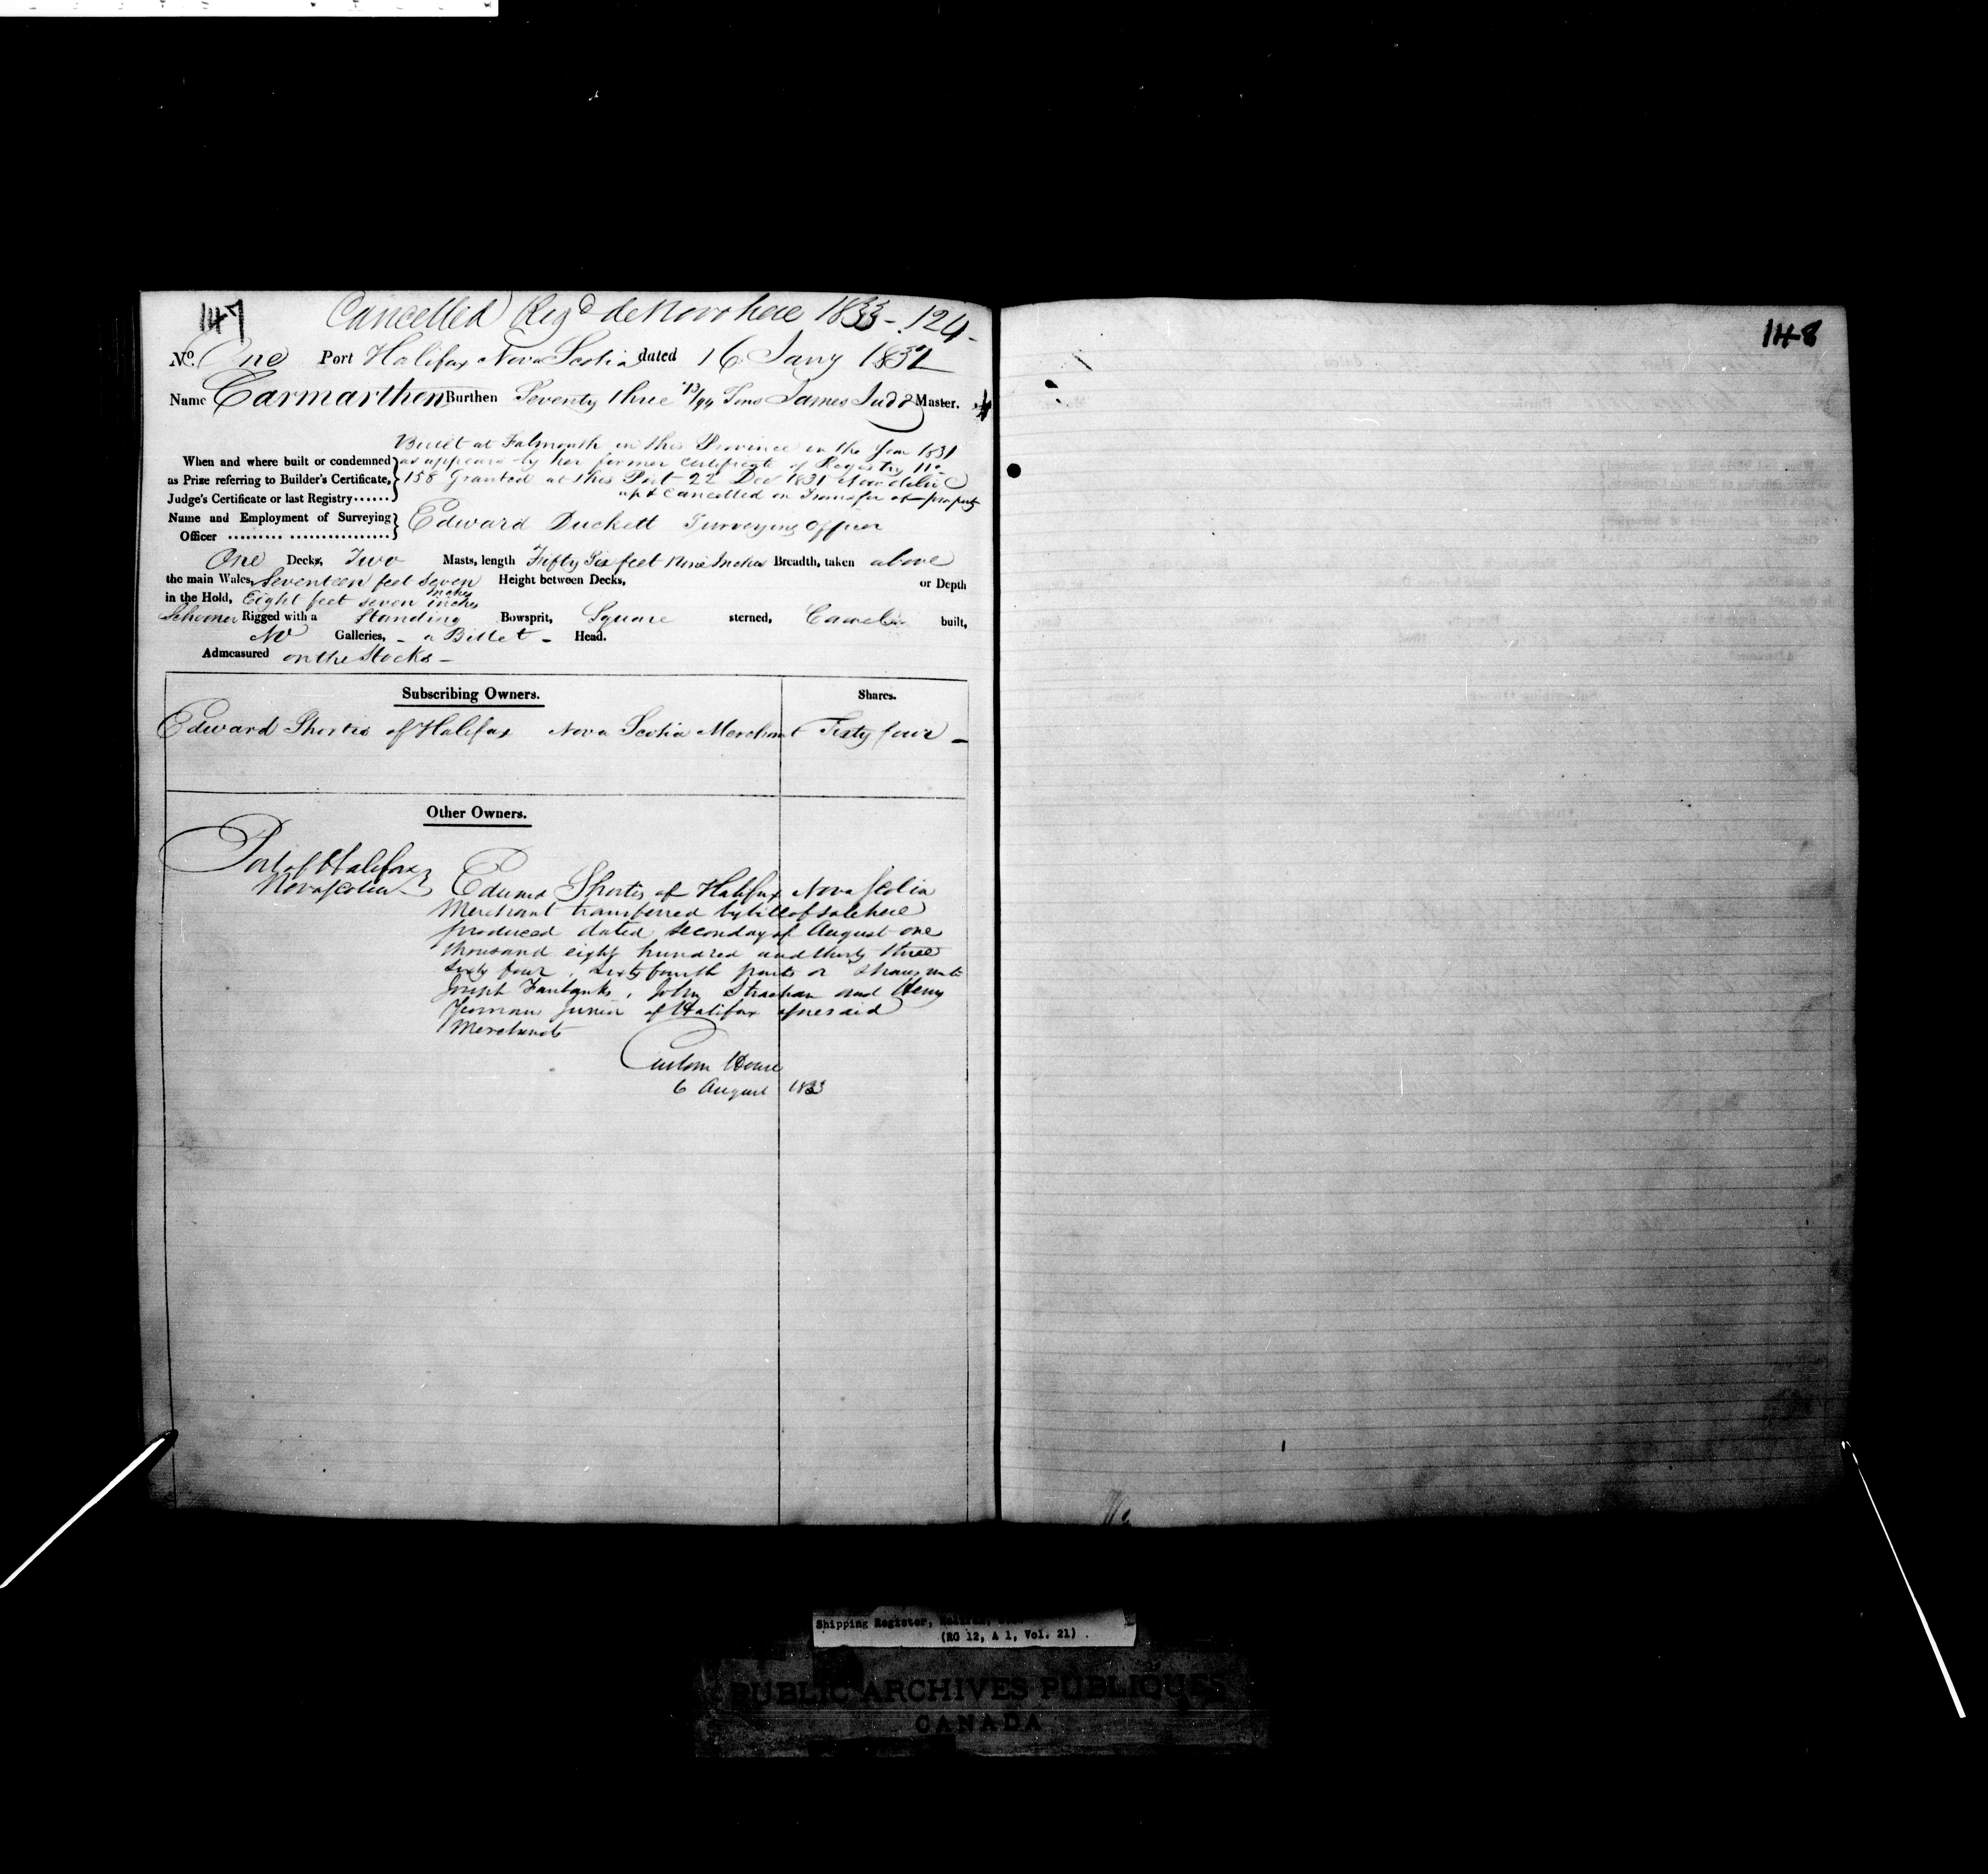 147
Cancelled Regd de Novo here 1833 - 124 -
No. One Port Halifax Nova Scotia dated 16 Jany 1832
Name Carmarthen Burthen Seventy three 13/94 Tons James Judd Master.
Built at Falmouth in this Province in the Year 1831
When and where built or condemned as appears by her former Certificate of Registry No
as Prize referring to Builder's Certificate, 158 Granted at this Port 22 Dec 1831 Now delivd
Judge's Certificate or last Registry...... up & Cancelled on Transfer of property
Name and Employment of Surveying Edward Duckett Surveying Officer
Officer ......... ................
One Decks, Two Masts, length Fifty Six feet Nine Inches Breadth, taken above
the main Wales, Seventeen feet seven Inches Height between Decks, or Depth
in the Hold, Eight feet seven inches
Schooner Rigged with a Standing Bowsprit, Square sterned, Carvel built,
No Galleries, - a Billet - Head.
Admeasured on the Stocks -
Subscribing Owners. Shares.
Edward Shortis of Halifax Nova Scotia Merchant Sixty four -
Other Owners.
Port of Halifax
Nova Scotia
Edward Shortis of Halifax Nova Scotia
Merchant transferred by bill of sale here
produced dated second day of August one
thousand eight hundred and thirty three
sixty four, sixty fourth parts or shares unto
Joseph Fairbanks, John Strachan and Henry
Yeomans Junior of Halifax aforesaid
Merchants
Custom House
6 August 1833
148
Shipping Register,
(RG 12, A 1, Vol. 21)
PUBLIC ARCHIVES PUBLIQUES
CANADA